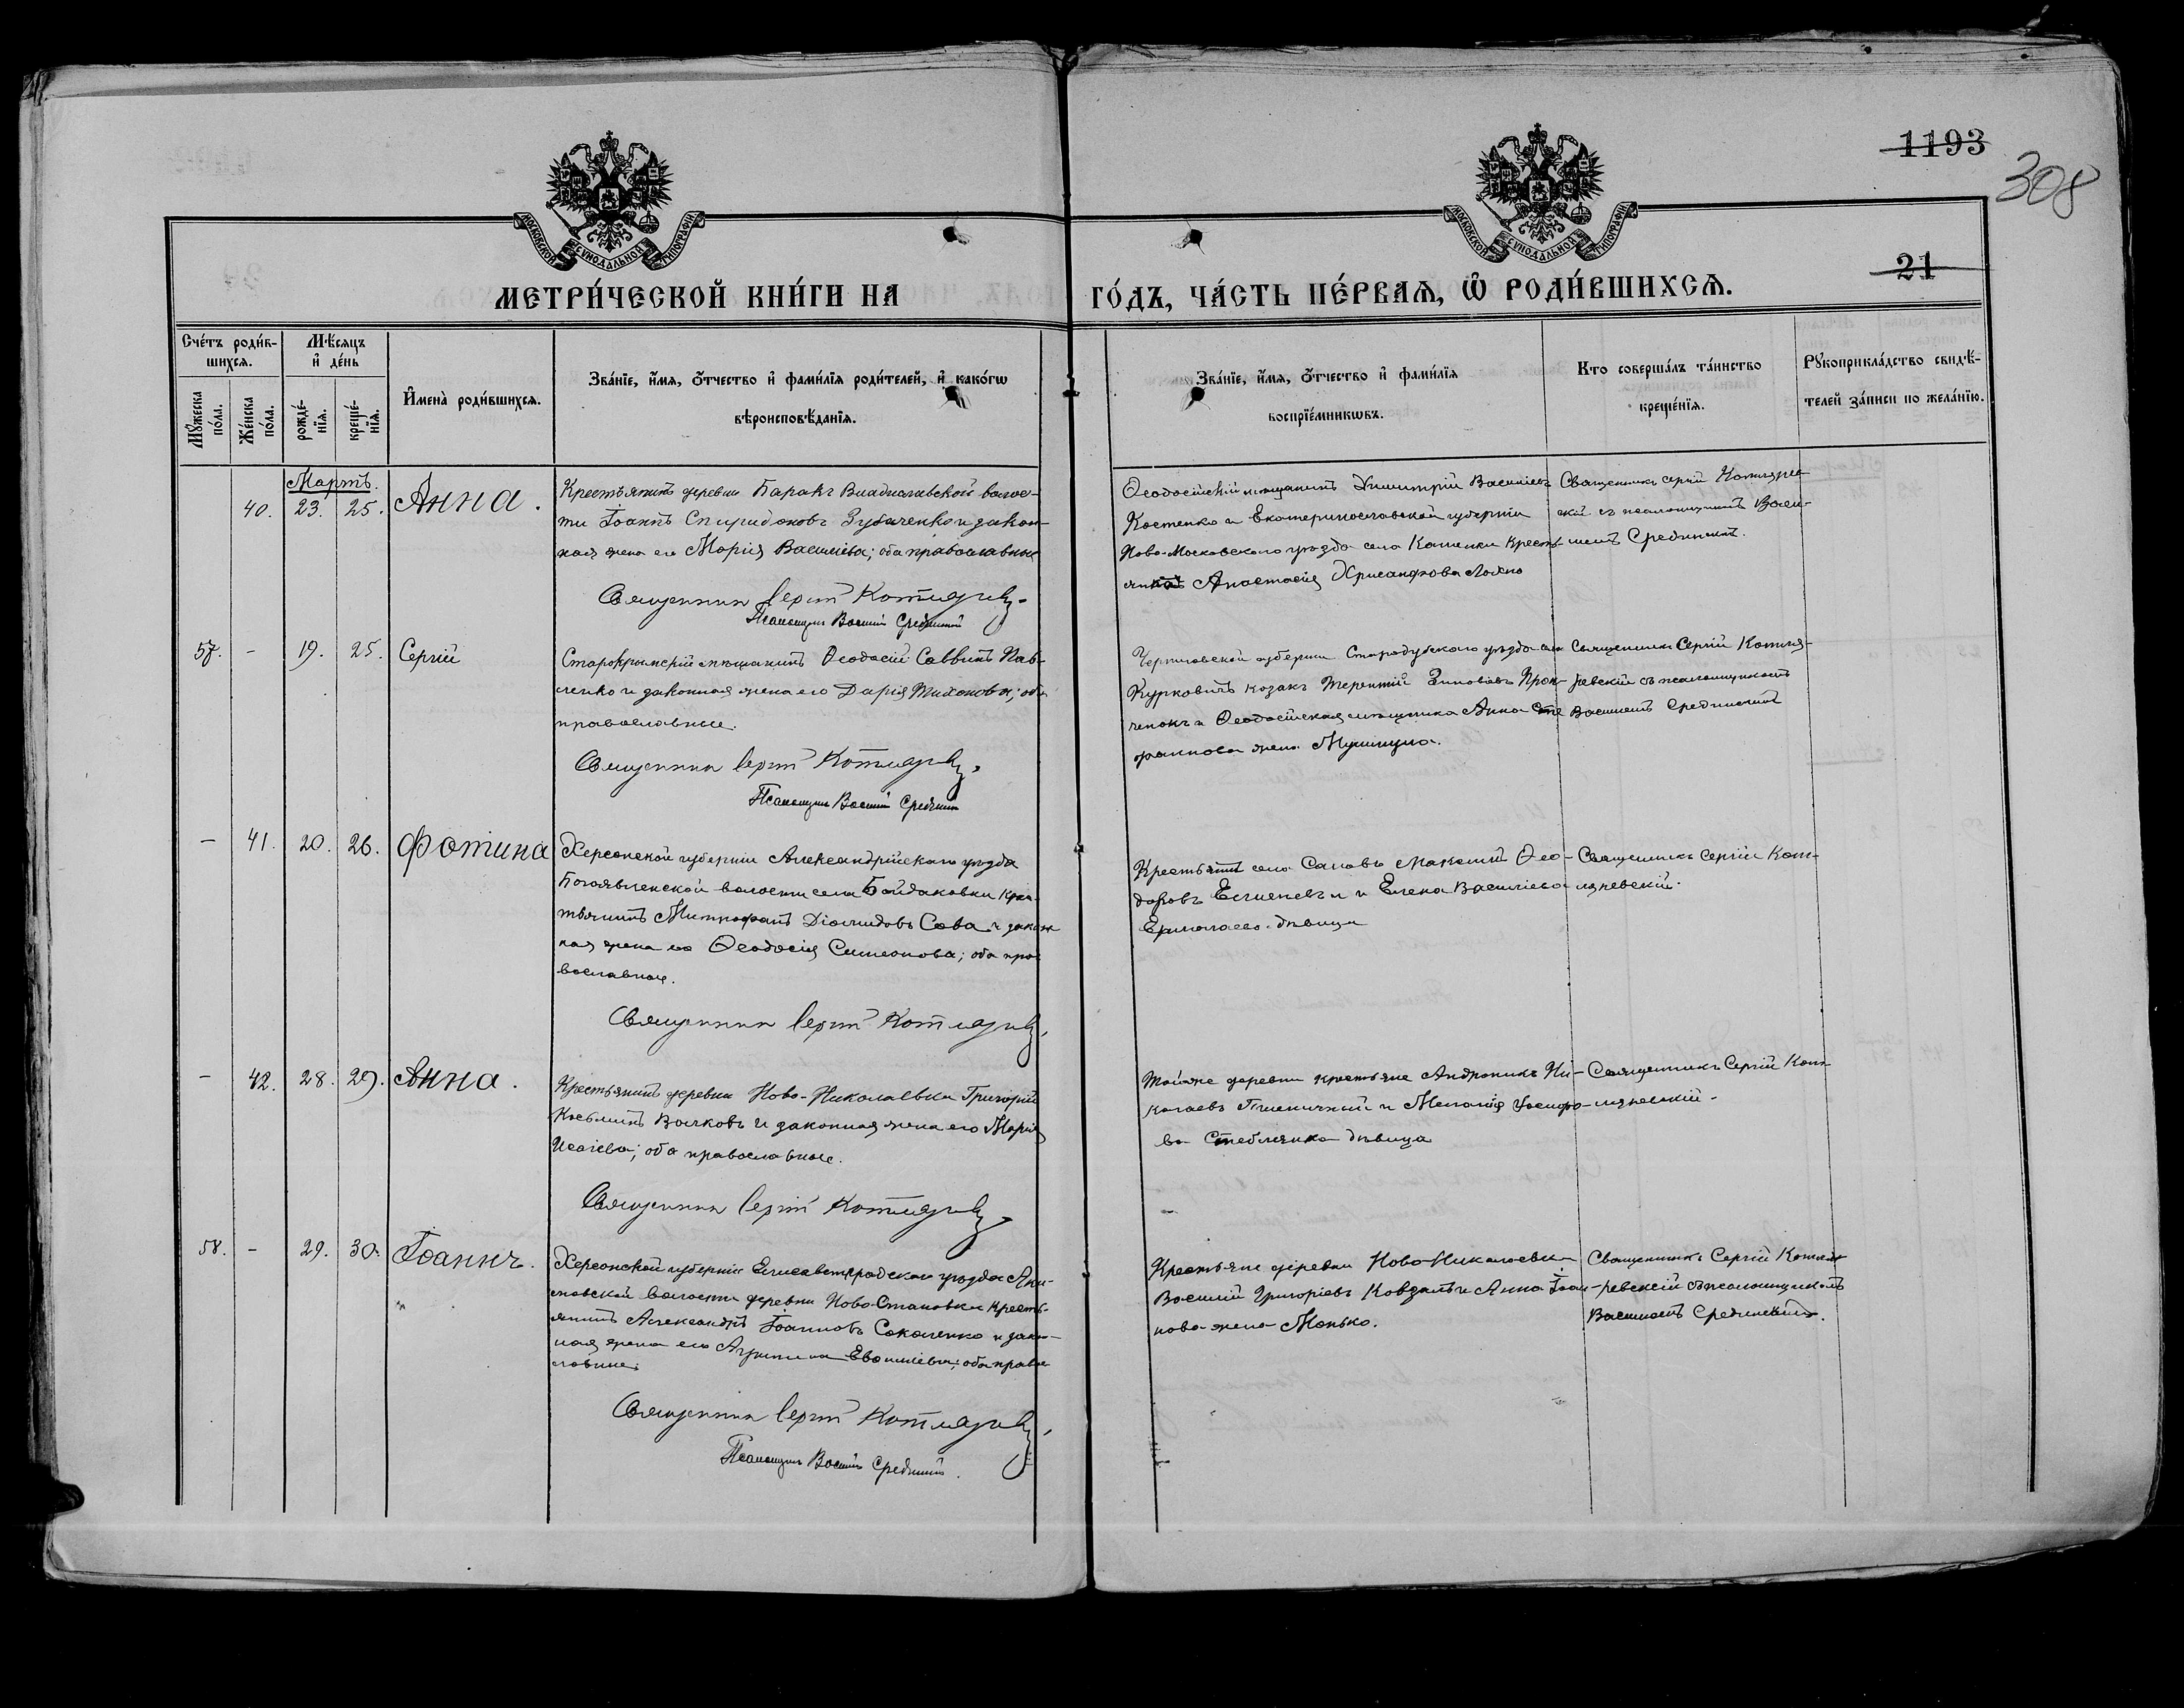 1193
308
МОСКОВСКОЙ СѴНОДАЛЬНОЙ ТИПОГРАФІИ
МОСКОВСКОЙ СѴНОДАЛЬНОЙ ТИПОГРАФІИ
21
МЕТРИ́ЧЕСКОЙ КНИ́ГИ НА
ГО́ДЪ, ЧА́СТЬ ПЕ́РВАѦ, Ѽ РОДИ́ВШИХСѦ.
Сче́тъ роди́в-
шихсѧ.
Мѣ́сѧцъ
и҆ де́нь
Мꙋ́жеска
по́ла.
Же́нска
по́ла.
рожде́-
нїѧ.
креще́-
нїѧ.
И҆мена̀ роди́вшихсѧ.
Зва́нїе, и҆́мѧ, ѻ҆́тчество и҆ фами́лїѧ роди́телей, и҆ како́гѡ
вѣроисповѣ́данїѧ.
Зва́нїе, и҆́мѧ, ѻ҆́тчество и҆ фами́лїѧ
воспрїе́мникѡвъ.
Кто соверша́лъ та́инство
креще́нїѧ.
Рꙋкоприкла́дство свидѣ́-
телей за́писи по жела́нїю.
Мартъ.
40. 23. 25. Анна.
Крестьянинъ деревни Баракъ Владиславской волос-
ти Іоаннъ Спиридоновъ Зубаченко и закон-
ная жена его Марія Васильева; оба православные
Священникъ Сергій Котляревскій
Псаломщикъ Василій Срединскій
Ѳеодосійскій мѣщанинъ Димитрій Васильевъ
Костенко и Екатеринославской губерніи
Ново-Московскаго уѣзда села Каменки кресть-
янка Анастасія Хрисанфова
Священникъ Сергій Котляре
скій съ псаломщикомъ Васи-
ліемъ Срединскимъ.
57. - 19. 25. Сергій
Старокрымскій мѣщанинъ Ѳеодосій Саввинъ Пав-
ленко и законная жена его Дарія Тихонова; оба
православные.
Священникъ Сергій Котляревскій
Псаломщикъ Василій Срединскій
Черниговской губерніи Стародубскаго уѣзда села
Курковичъ козакъ Терентій Зиновьевъ Прон-
ченокъ и Ѳеодосійская мѣщанка Анна Сте
фанова жена
Священникъ Сергій Котля-
ревскій съ псаломщикомъ
Василіемъ Срединскимъ
- 41. 20. 26. Фотина
Херсонской губерніи Александрійскаго уѣзда
Богоявленской волости села Байдаковки крес-
тьянинъ Митрофанъ Діомидовъ Сова и закон
ная жена его Ѳеодосія Симеонова; оба пра-
вославные.
Священникъ Сергій Котляревскій
Крестьяне села Саловъ Максимъ Ѳео-
доровъ и Елена Васильева
Ермолаева дѣвица
Священникъ Сергій Кот-
ляревскій.
- 42. 28. 29. Анна.
Крестьянинъ деревни Ново-Николаевки Григорій
Косьминъ Волковъ и законная жена его Марія
Исаіева; оба православные.
Священникъ Сергій Котляревскій
Той же деревни крестьяне Андроникъ Ни-
колаевъ Пшеничный и Меланія Іосифо-
ва Стеблянка дѣвица
Священникъ Сергій Кот-
ляревскій.
58. - 29. 30. Іоаннъ.
Херсонской губерніи Елисаветградскаго уѣзда Ани-
товской волости деревни Ново-Становки кресть-
янинъ Александръ Іоанновъ Соколенко и закон-
ная жена его Агрипина; оба право
славные.
Священникъ Сергій Котляревскій
Псаломщикъ Василій Срединскій.
Крестьяне деревни Ново-Николаевки
Василій Григорьевъ Ковзалъ и Анна Іоан-
нова жена Монько.
Священникъ Сергій Котля
ревскій съ псаломщикомъ
Василіемъ Срединскимъ.